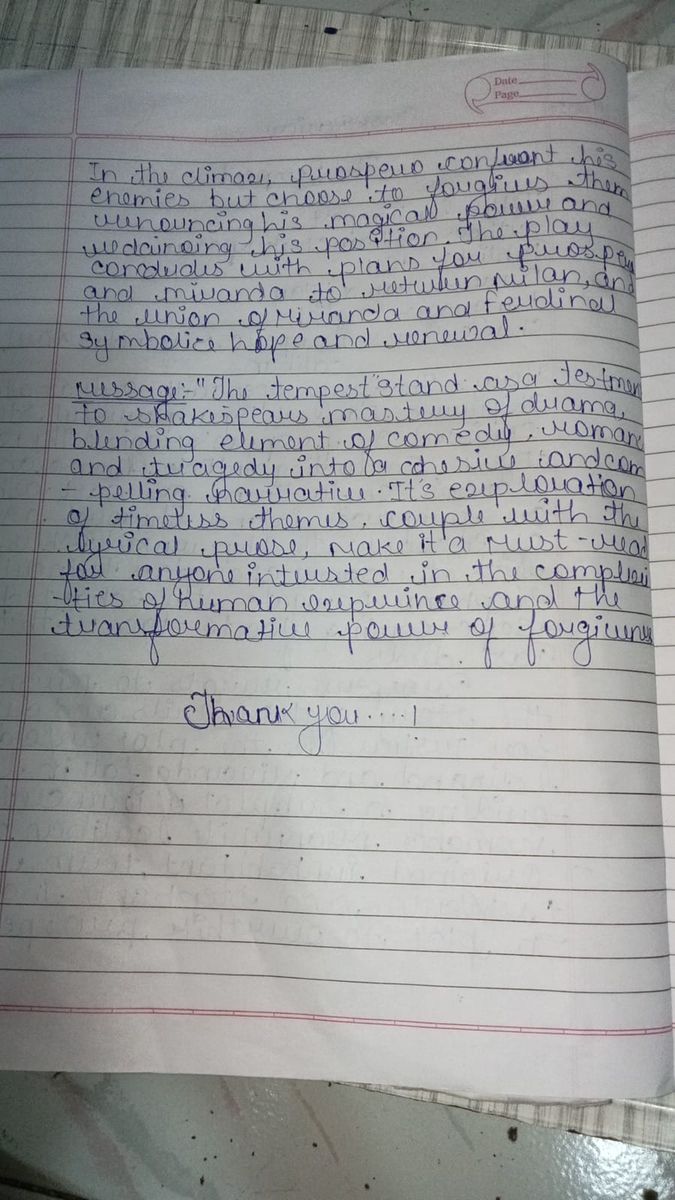 Date
Page
In the climax, prospero confront his
enemies but choose to forgive them
renouncing his magical power and
reclaiming his position. The play
concludes with plans for prospero
and miranda to return milan, and
the union of miranda and ferdinal
symbolice hope and renewal.
Message:- "The tempest" stand as a testment
to shakespears mastery of drama,
blending element of comedy, romance
and tragedy into a cohesive and com
- pelling narrative. It's exploration
of timeless themes, couple with the
lyrical prose, make it a must-read
for anyone intrusted in the complexi
-ties of human exprince and the
transformative power of forgiveness
Thank you....!